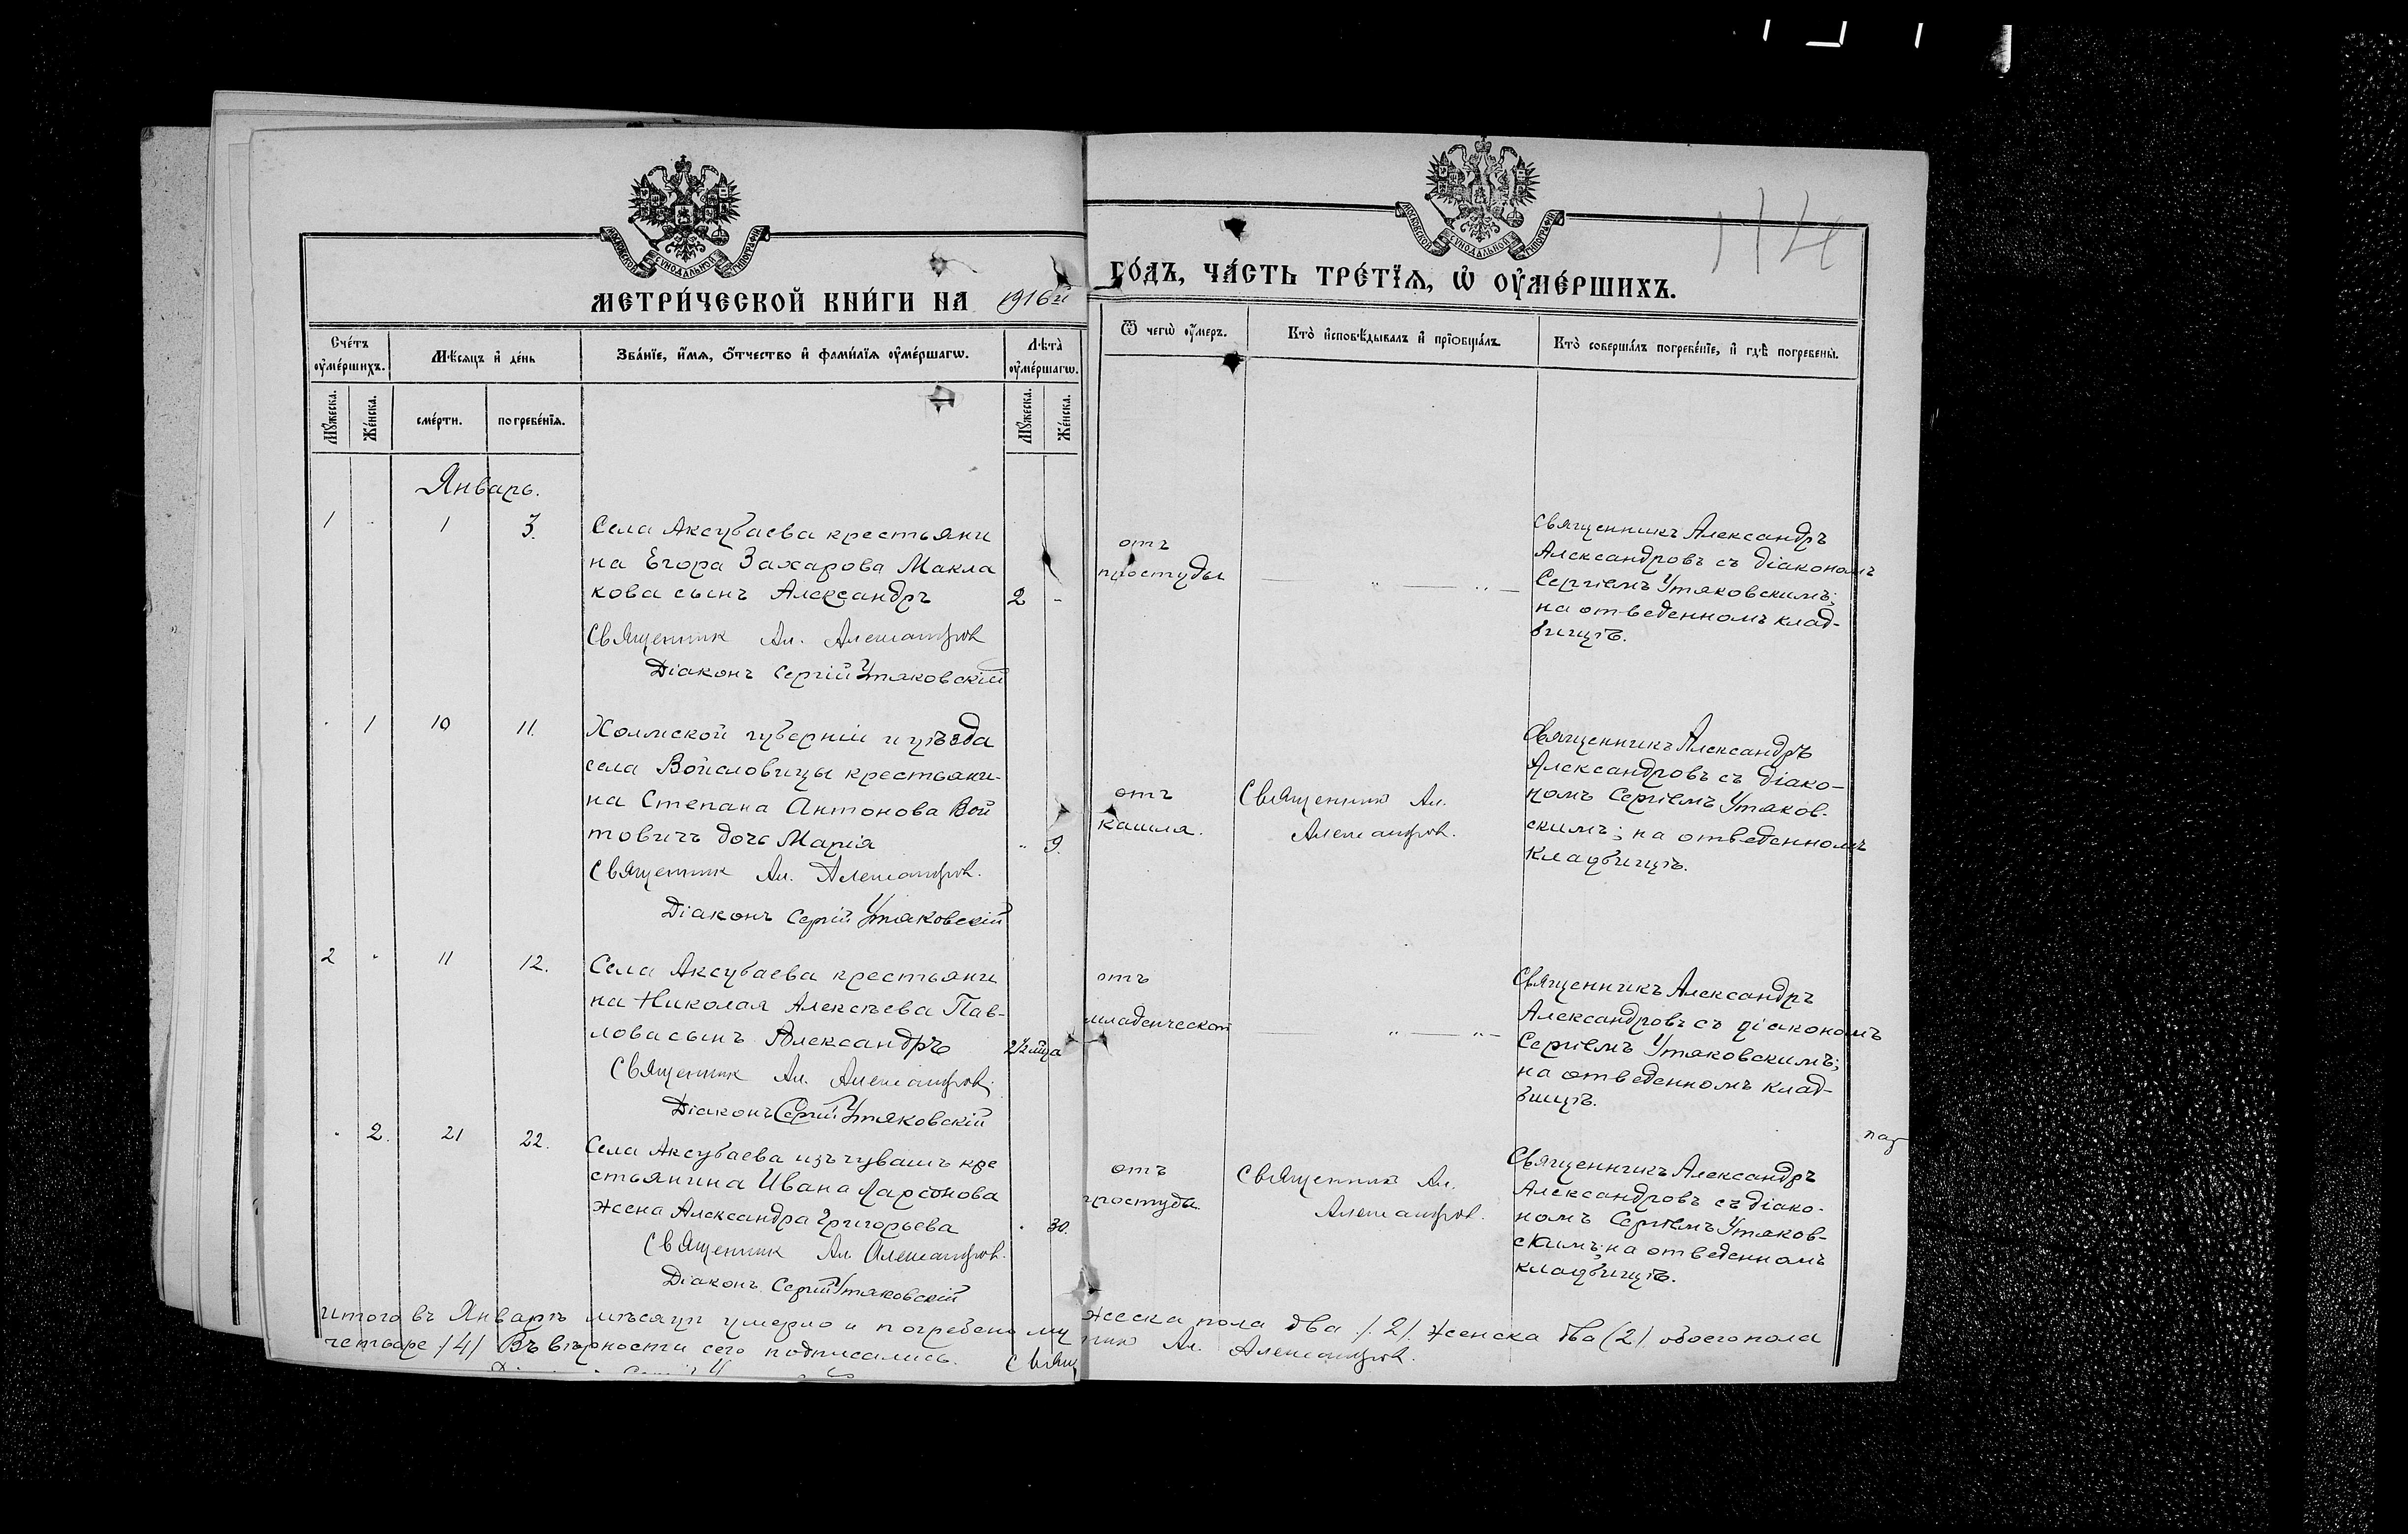 114
МОСКОВСКОЙ СѴНОДАЛЬНОЙ ТИПОГРАФІИ
МОСКОВСКОЙ СѴНОДАЛЬНОЙ ТИПОГРАФІИ
МЕТРИ́ЧЕСКОЙ КНИ́ГИ НА 1916й ГО́ДЪ, ЧА́СТЬ ТРЕ́ТЇѦ, Ѡ҆ ОУ҆МЕ́РШИХЪ.
Сче́тъ оу҆ме́ршихъ.
Мѣ́сяцъ и҆ де́нь
Зва́нїе, и҆́мѧ, ѻ҆́тчество и҆ фами́лїѧ оу҆ме́ршагѡ.
Лѣ́та̀ оу҆ме́ршагѡ.
Ѿ чегѡ̀ оу҆́меръ.
Кто̀ и҆сповѣ́дывалъ и҆ прїѻбща́лъ.
Кто̀ соверша́лъ погребе́нїе, и҆ гдѣ̀ погребены̀.
Мꙋ́жеска.
Же́нска.
сме́рти.
погребе́нїѧ.
Мꙋ́жеска.
Же́нска.
Январь.
1 1 3.
Села Аксубаева крестьяни
на Егора Захарова Макла
кова сынъ Александръ 2 -
Священник Ал. Александров
Діаконъ Сергій Утяковскій
отъ
простуды
Священникъ Александръ
Александровъ съ діакономъ
Сергіемъ Утяковскимъ;
на отведенномъ клад-
бищѣ.
1 10 11.
Холмской губерніи и уѣзда
села Войсловицы крестьяни-
на Степана Антонова Вой
товичъ дочь Марія 9.
Священник Ал. Александров.
Діаконъ Сергій Утяковскій
отъ
кашля.
Священник Ал.
Александров.
Священникъ Александръ
Александровъ съ діако-
номъ Сергіемъ Утяков-
скимъ; на отведенномъ
кладбищѣ.
2 11 12.
Села Аксубаева крестьяни
на Николая Алексѣева Пав-
лова сынъ Александръ 2½ мца
Священник Ал. Александров.
Діаконъ Сергій Утяковскій
отъ
младенческой
Священникъ Александръ
Александровъ съ діакономъ
Сергіемъ Утяковскимъ;
на отведенномъ клад-
бищѣ.
2. 21 22.
Села Аксубаева изъ чувашъ кре
стьянина Ивана Ларіонова
жена Александра Григорьева 30.
Священник Ал. Александров.
Діаконъ Сергій Утяковскій
отъ
простуды.
Священник Ал.
Александров.
Священникъ Александръ
Александровъ съ діако-
номъ Сергіемъ Утяков-
скимъ; на отведенномъ
кладбищѣ.
Итого въ Январѣ мѣсяцѣ умерло и погребено му жеска пола два /2/. женска два (2) обоего пола
четыре /4/ Въ вѣрности сего подписались. Свящ ник Ал. Александров.